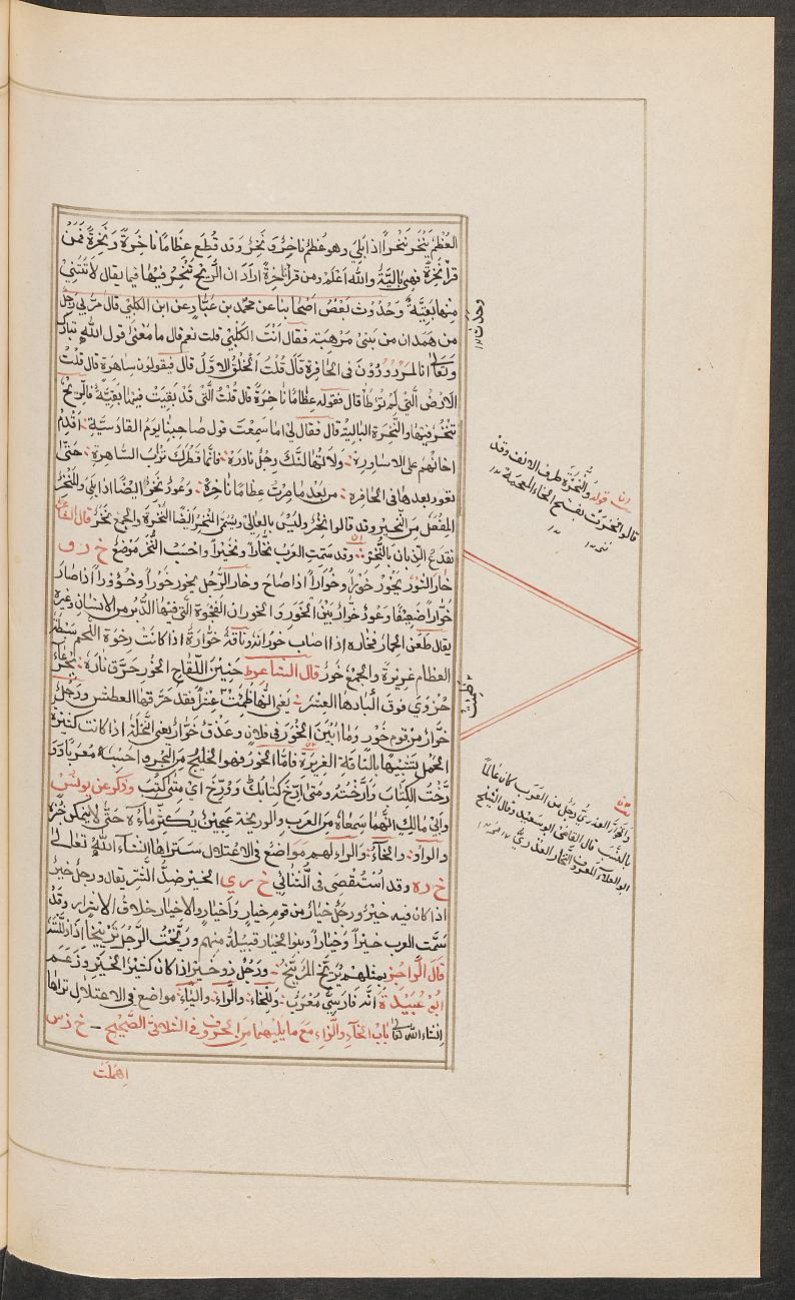 العَظْمُ يَنْخَرُ نَخَراً اذا بَلِيَ وهو عَظمٌ ناخِرٌ ونَخِرٌ وقد قُطِعَ عِظَامًا ناخِرَةً ونَخِرةً فَمَن
قرأ نَخِرَةً فهى بالِيَةٌ والله اَعْلَم ومن قرأ ناخِرةً ارادَ ان الرِّيحَ تَنْخِرُ فيْها فيما يقال لاَنَّتَنِيْ
مِنها بَقِيَّه وَحَدّوث بَعْضُ اصْحَابِنا عن محمّد بن عبّاد عن ابن الكَلْبى قال مَرَّ بى رَجُلٌ
من هَمدان من بَنى مَرْهِبَة فقال اَنْتَ الكَلْبِى قلت نعم قال ما مَعْنىٰ قول اللّهِ تبارَكَ
وتَعالىٰ انا لمَرْدُودُوْنَ فى الحَافِرة قَالَ قُلْتُ الخَلْقُ الاوّلُ قالَ فيَقولون سَاهِرة قال قلتُ
الاَرْضُ الَّتى لَمْ تُوْطَأْ قال فقوله عِظَامًا نَاخِرَةً قال قُلْتُ الَّتى قَدْ بَقِيَتْ فيها بَقِيَّة فالرّيحُ
تَنْخَرُ فيها والنَّخِرَة البالِيَة قال فقال لى اما سَمِعْتَ قول صَاحِبِنا يَومَ القادِسيَّة اَقْدِمْ
اخانَهْمِ على الاسَاوِرة ولا تَهُالنَّكَ رِجْلٌ نادِرَة فانَّما قَصْرُكَ تُرْبُ السَّاهِرة حَتّىٰ
تعود بَعدها فى الحافِرة من بَعد ما صِرْتَ عِظامًا ناخِرَةْ وعُودٌ نَخِرٌ ايضًا اذا بَلِىَ والمَنْخَرُ
المِفْصَل مِن النَّخِير وقد قالوا مِنْخِرٌ وليْسَ بالعالِى وسُمِّى المَنْخِرُ ايضًا النُّخْرَة والجَمع نُخَرٌ قال الشاعر
نقدع الذِّبان بالنُّخَر وقد سَمَّتِ العَرب نخّاراً ونُخَيْراً واحْسَبُ النُّخَرَ مَوْضع خ ر و
خارَ الثَّورُ يخورُ خَوْراً وخُوَاراً اذا صَاحَ وخار الرَّجُل يَخورُ خَوَراً وخُؤُوْراً اذا صَارَ
خَوّاراً ضعيْفًا وعُودٌ خَوّارٌ بَيّنُ الخَوَر والخوران الفَجْوَة الَّتى فيها الدُّبُر من الاِنسَان وغيرِه
يقال طَعَنَ الحِمارَ فخَارَه اذا اصابَ خَوْرانَه وناقةٌ خَوّارَةٌ اذا كانَتْ رِخْوَة اللّحم سَبْطَةَ
العظام غزِيرَة والجمعُ خُورٌ قال الشاعر حَنينَ اللّقَاح الخُور حَرَّق نارَهُ
حَزْوَى فوقَ اَكْبادها العِشر يَعْنى انّها ظَمِئَتْ عِشراً فقد حَرّقها العطش ورَجُلٌ
خوّارٌ من قومٍ خُور وما اَبْيَنَ الخَوَر فى فلان وعَذْقٌ خَوّارٌ يعنى النَّخلة اذا كانت كثيرةَ
الحمْل يَشبيْها بالنَّاقة الغزِيْرَة فامّا الخَوْر فهو الخليْج مِنَ البَحْر واحْسِبه معَرّبًا وقد
رَّخْتُ الكِتَابَ واَرَّخْتُه ومَتىٰ اُرِّخَ كتابُكَ ووُرِّخَ اى مَتىٰ كُتِبَ وذكر عن يونسُ
واَبى مالِكٍ انّهما سَمِعاه مِنَ العَرب والوَرِيخة عَجِينٌ يُكَثِّر مَاءُه حَتّى لا يُمكن خُبزَه
والواو والخاء والراء لهم مَواضعُ فى الاعتلال سَتراها انشاء اللّه تَعَالىٰ
خ ر ه وقد اسْتُقصِى فى الثنائي خ ر ي الخَيْر ضِدُّ الشّرّ يقال رجلٌ خيْرٌ
اذا كان فيه خيْرٌ ورجُل خيارٌ من قوم خيارٍ واَخْيارٍ والاخيار خلافُ الاشرار وقَدْ
سمَّت العرب خيْراً وخِياراً وبنوا الخيار قبيلةٌ منهم ورَيَّخْتُ الرَّجُلَ تَرْيِيخاً اذا ذلّلتَه
قال الراجز بمثلهم يُرَيَّخُ المُرَيَّخُ ورَجُلٌ ذو خَيْرٍ اذا كان كثِيْر الخَيْر وزَعَم
ابُو عُبَيْدَة انّه فارسِىٌّ معَرّبٌ وللخاء والراء والياء مَواضع فى الاعتلال تَراها
اِنشاء الله تعالىٰ بَابُ الخاءِ والرّاء مَعَ ما يَلِيهُما مِنَ الحرُوف فى الثلاثى الصَّحِيْح - خ ز س
اهْمَلَتْ
وحَدّثنا
ظمئت
قوله والنُّخرَة طرف الانف وقد
قالوا نخرت بفَتح الخاء المعجمة ١٢
والنخّار العذرىّ رجل من العَرَب كان عالماً
بالنّسَب قال القاضى ابو سَعيد وقال الشّيخ
ابو العلاء المعروف النّخار العذرىّ ١٢